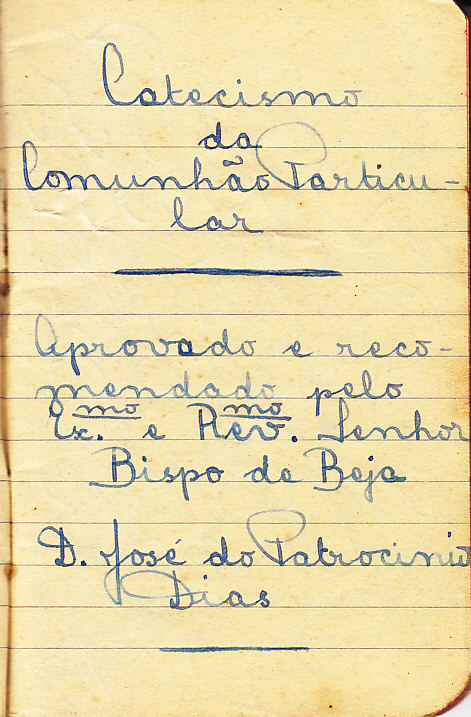 Catecismo
da
Comunhão Particu-
lar
Aprovado e reco-
mendado pelo
Ex.mo e Rev.mo Senhor
Bispo de Beja
D. José do Patrocinio
Dias